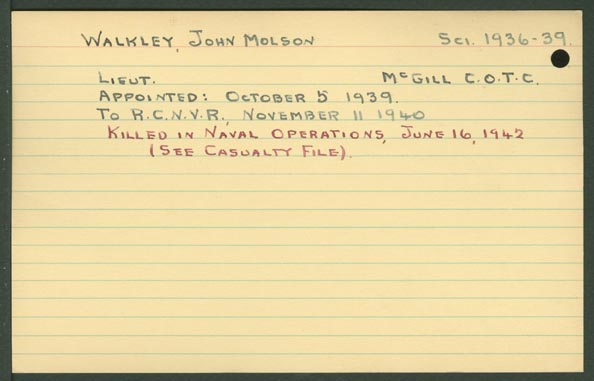 WALKLEY, JOHN MOLSON SCI. 1936-39.
LIEUT. McGILL C.O.T.C.
APPOINTED: OCTOBER 5 1939.
TO R.C.N.V.R., NOVEMBER 11 1940
KILLED IN NAVAL OPERATIONS, JUNE 16, 1942
(SEE CASUALTY FILE).